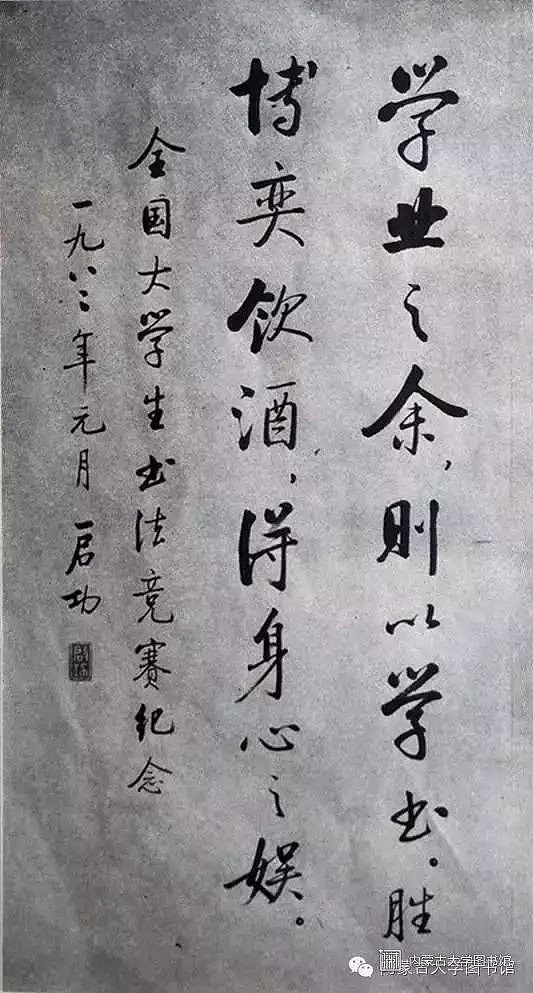 学业之余，则以学书。胜
博奕饮酒，得身心之娱。
全国大学生书法竞赛纪念
一九八三年元月 启功
内蒙古大学图书馆
内蒙古大学图书馆